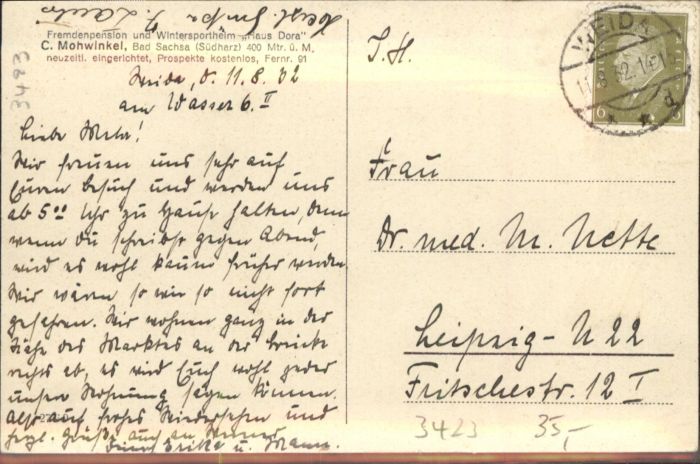 Herzl. Grüße
Fremdenpension und Wintersportheim „Haus Dora"
C. Mohwinkel, Bad Sachsa (Südharz) 400 Mtr. ü. M.
neuzeitl. eingerichtet, Prospekte kostenlos, Fernr. 91
Weida, d. 11.8.32
am Wasser 6 II
Liebe Meta!
Wir freuen uns sehr auf
Euren Besuch und werden uns
ab 5⁰⁰ Uhr zu Hause halten, denn
wenn Du schreibst gegen Abend,
wird es wohl kaum früher werden.
Wir wären so wie so nicht fort
gefahren. Wir wohnen ganz in der
Nähe des Marktes an der Brücke
rechts ab, es wird Euch wohl jeder
unsere Wohnung sagen können.
Also auf frohes Wiedersehen und
herzl. Grüße auch an
Deine Erika u. Mann.
3423
T. H.
WEIDA
Frau
Dr. med. M. Nette
Leipzig - N 22
Fritschestr. 12 I
3423 35,-